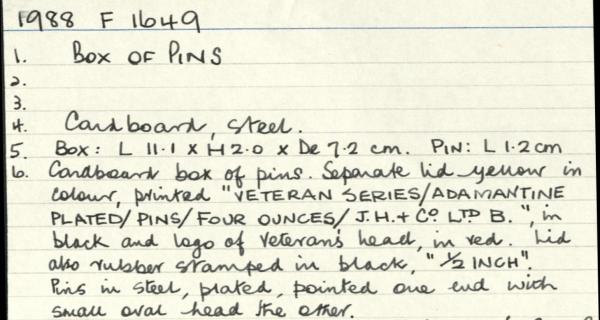 1988 F 1649
1. BOX OF PINS
2.
3.
4. Cardboard, steel.
5 Box: L 11.1 x H 2.0 x De 7.2 cm. PIN: L 1.2 cm
6. Cardboard box of pins. Separate lid yellow in
colour, printed "VETERAN SERIES/ADAMANTINE
PLATED/PINS/FOUR OUNCES/J.H.+ Co LTD B.", in
black and logo of veteran's head, in red. Lid
also rubber stamped in black, "1/2 INCH".
Pins in steel, plated, pointed one end with
small oval head the other.